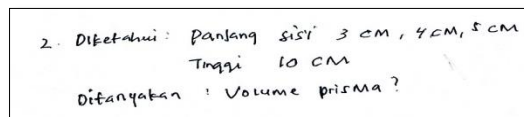 2. Diketahui : Panjang sisi 3 cm, 4 cm, 5 cm
Tinggi 10 cm
Ditanyakan : Volume prisma ?